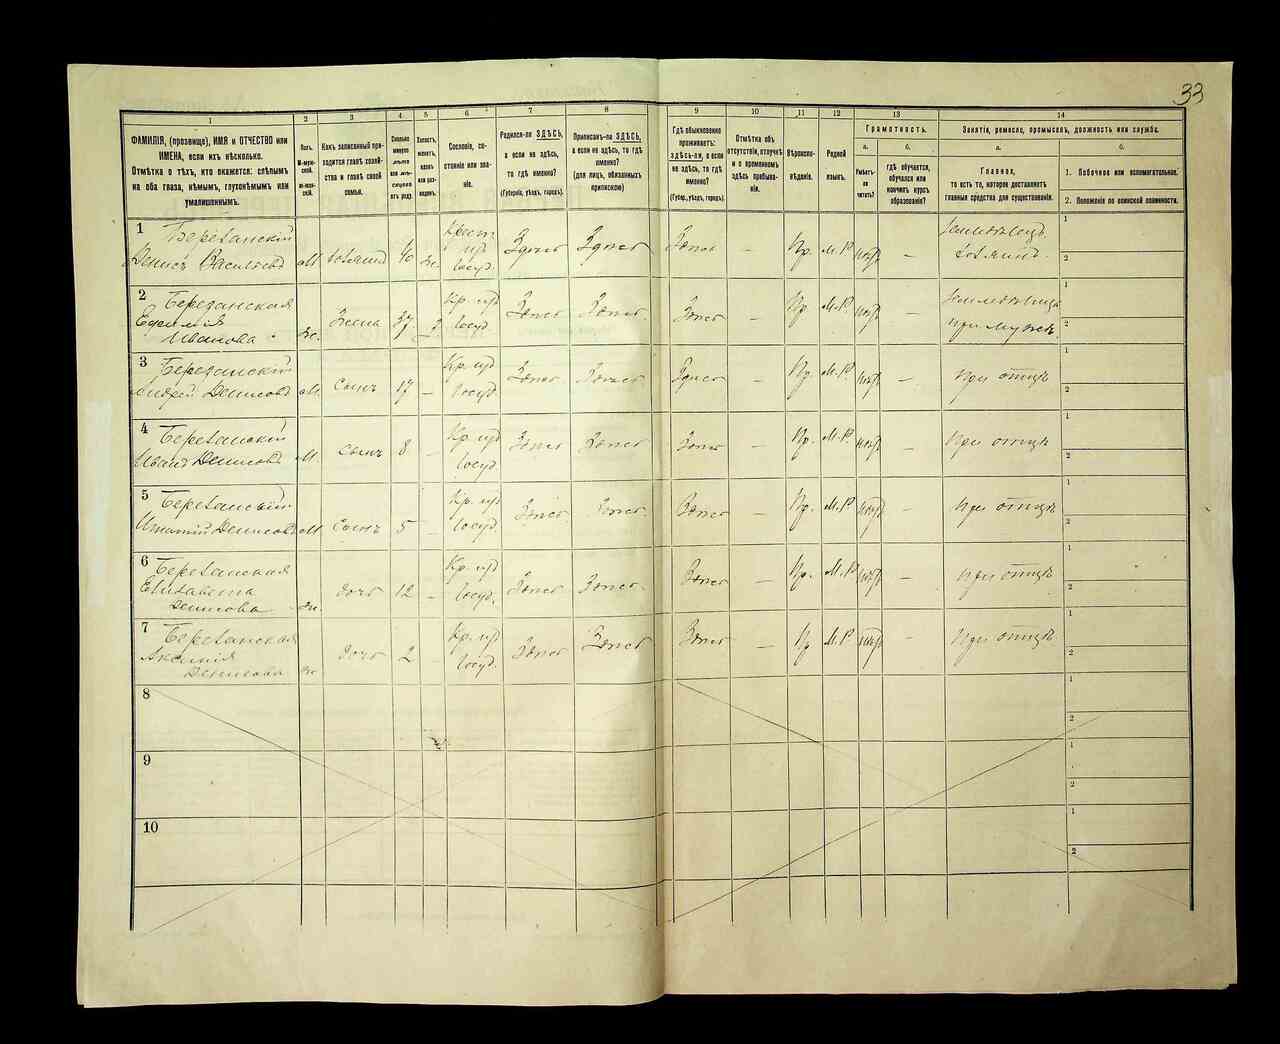 33
1
2
3
4
5
6
7
8
9
10
11
12
13
14
ФАМИЛІЯ, (прозвище), ИМЯ и ОТЧЕСТВО или
ИМЕНА, если ихъ нѣсколько.
Отмѣтка о тѣхъ, кто окажется: слѣпымъ
на оба глаза, нѣмымъ, глухонѣмымъ или
умалишеннымъ.
Полъ.
М-муж-
ской.
Ж-жен-
скій.
Какъ записанный при-
ходится главѣ хозяй-
ства и главѣ своей
семьи.
Сколько
минуло
лѣтъ
или мѣ-
сяцевъ
отъ роду.
Холостъ,
женатъ,
вдовъ
или раз-
веденъ.
Сословіе, со-
стояніе или зва-
ніе.
Родился-ли ЗДѢСЬ,
а если не здѣсь,
то гдѣ именно?
(Губернія, уѣздъ, городъ).
Приписанъ-ли ЗДѢСЬ,
а если не здѣсь, то гдѣ
именно?
(для лицъ, обязанныхъ
припискою)
Гдѣ обыкновенно
проживаетъ:
здѣсь-ли, а если
не здѣсь, то гдѣ
именно?
(Губер., уѣздъ, городъ).
Отмѣтка объ
отсутствіи, отлучкѣ
и о временномъ
здѣсь пребыва-
ніи.
Вѣроиспо-
вѣданіе.
Родной
языкъ.
Грамотность.
а.
Умѣетъ-
ли
читать?
б.
гдѣ обучается,
обучался или
кончилъ курсъ
образованія?
Занятіе, ремесло, промыселъ, должность или служба.
а.
Главное,
то есть то, которое доставляетъ
главныя средства для существованія.
б.
1. Побочное или вспомогательное.
2. Положеніе по воинской повинности.
1 Березанскій
Денисъ Васильевъ М хозяинъ 40 Ж. Крест. изъ Госуд. Здѣсь Здѣсь Здѣсь – Пр. М.Р нѣтъ – Земледѣлецъ хозяинъ 1 2
2 Березанская
Ефимія
Иванова Ж. Жена 37 З Кр. изъ Госуд. Здѣсь Здѣсь. Здѣсь – Пр М.Р нѣтъ – Земледѣлица при мужѣ. 1 2
3 Березанскій
Андрей Денисовъ М. Сынъ 17 – Кр. изъ Госуд. Здѣсь Здѣсь Здѣсь – Пр М.Р нѣтъ – При отцѣ 1 2
4 Березанскій
Иванъ Денисовъ М. Сынъ 8 – Кр. изъ Госуд. Здѣсь Здѣсь Здѣсь – Пр. М.Р нѣтъ – При отцѣ 1 2
5 Березанскій
Игнатій Денисовъ М Сынъ 5 – Кр. изъ Госуд. Здѣсь Здѣсь Здѣсь – Пр. М.Р нѣтъ – При отцѣ 1 2
6 Березанская
Елизавета
Денисова Ж. дочь 12 – Кр. изъ Госуд. Здѣсь Здѣсь Здѣсь – Пр. М.Р нѣтъ – При отцѣ 1 2
7 Березанская
Аксинія
Денисова Ж. дочь 2 – Кр. изъ Госуд. Здѣсь Здѣсь Здѣсь – Пр М.Р нѣтъ – При отцѣ 1 2
8 1 2
9 1 2
10 1 2